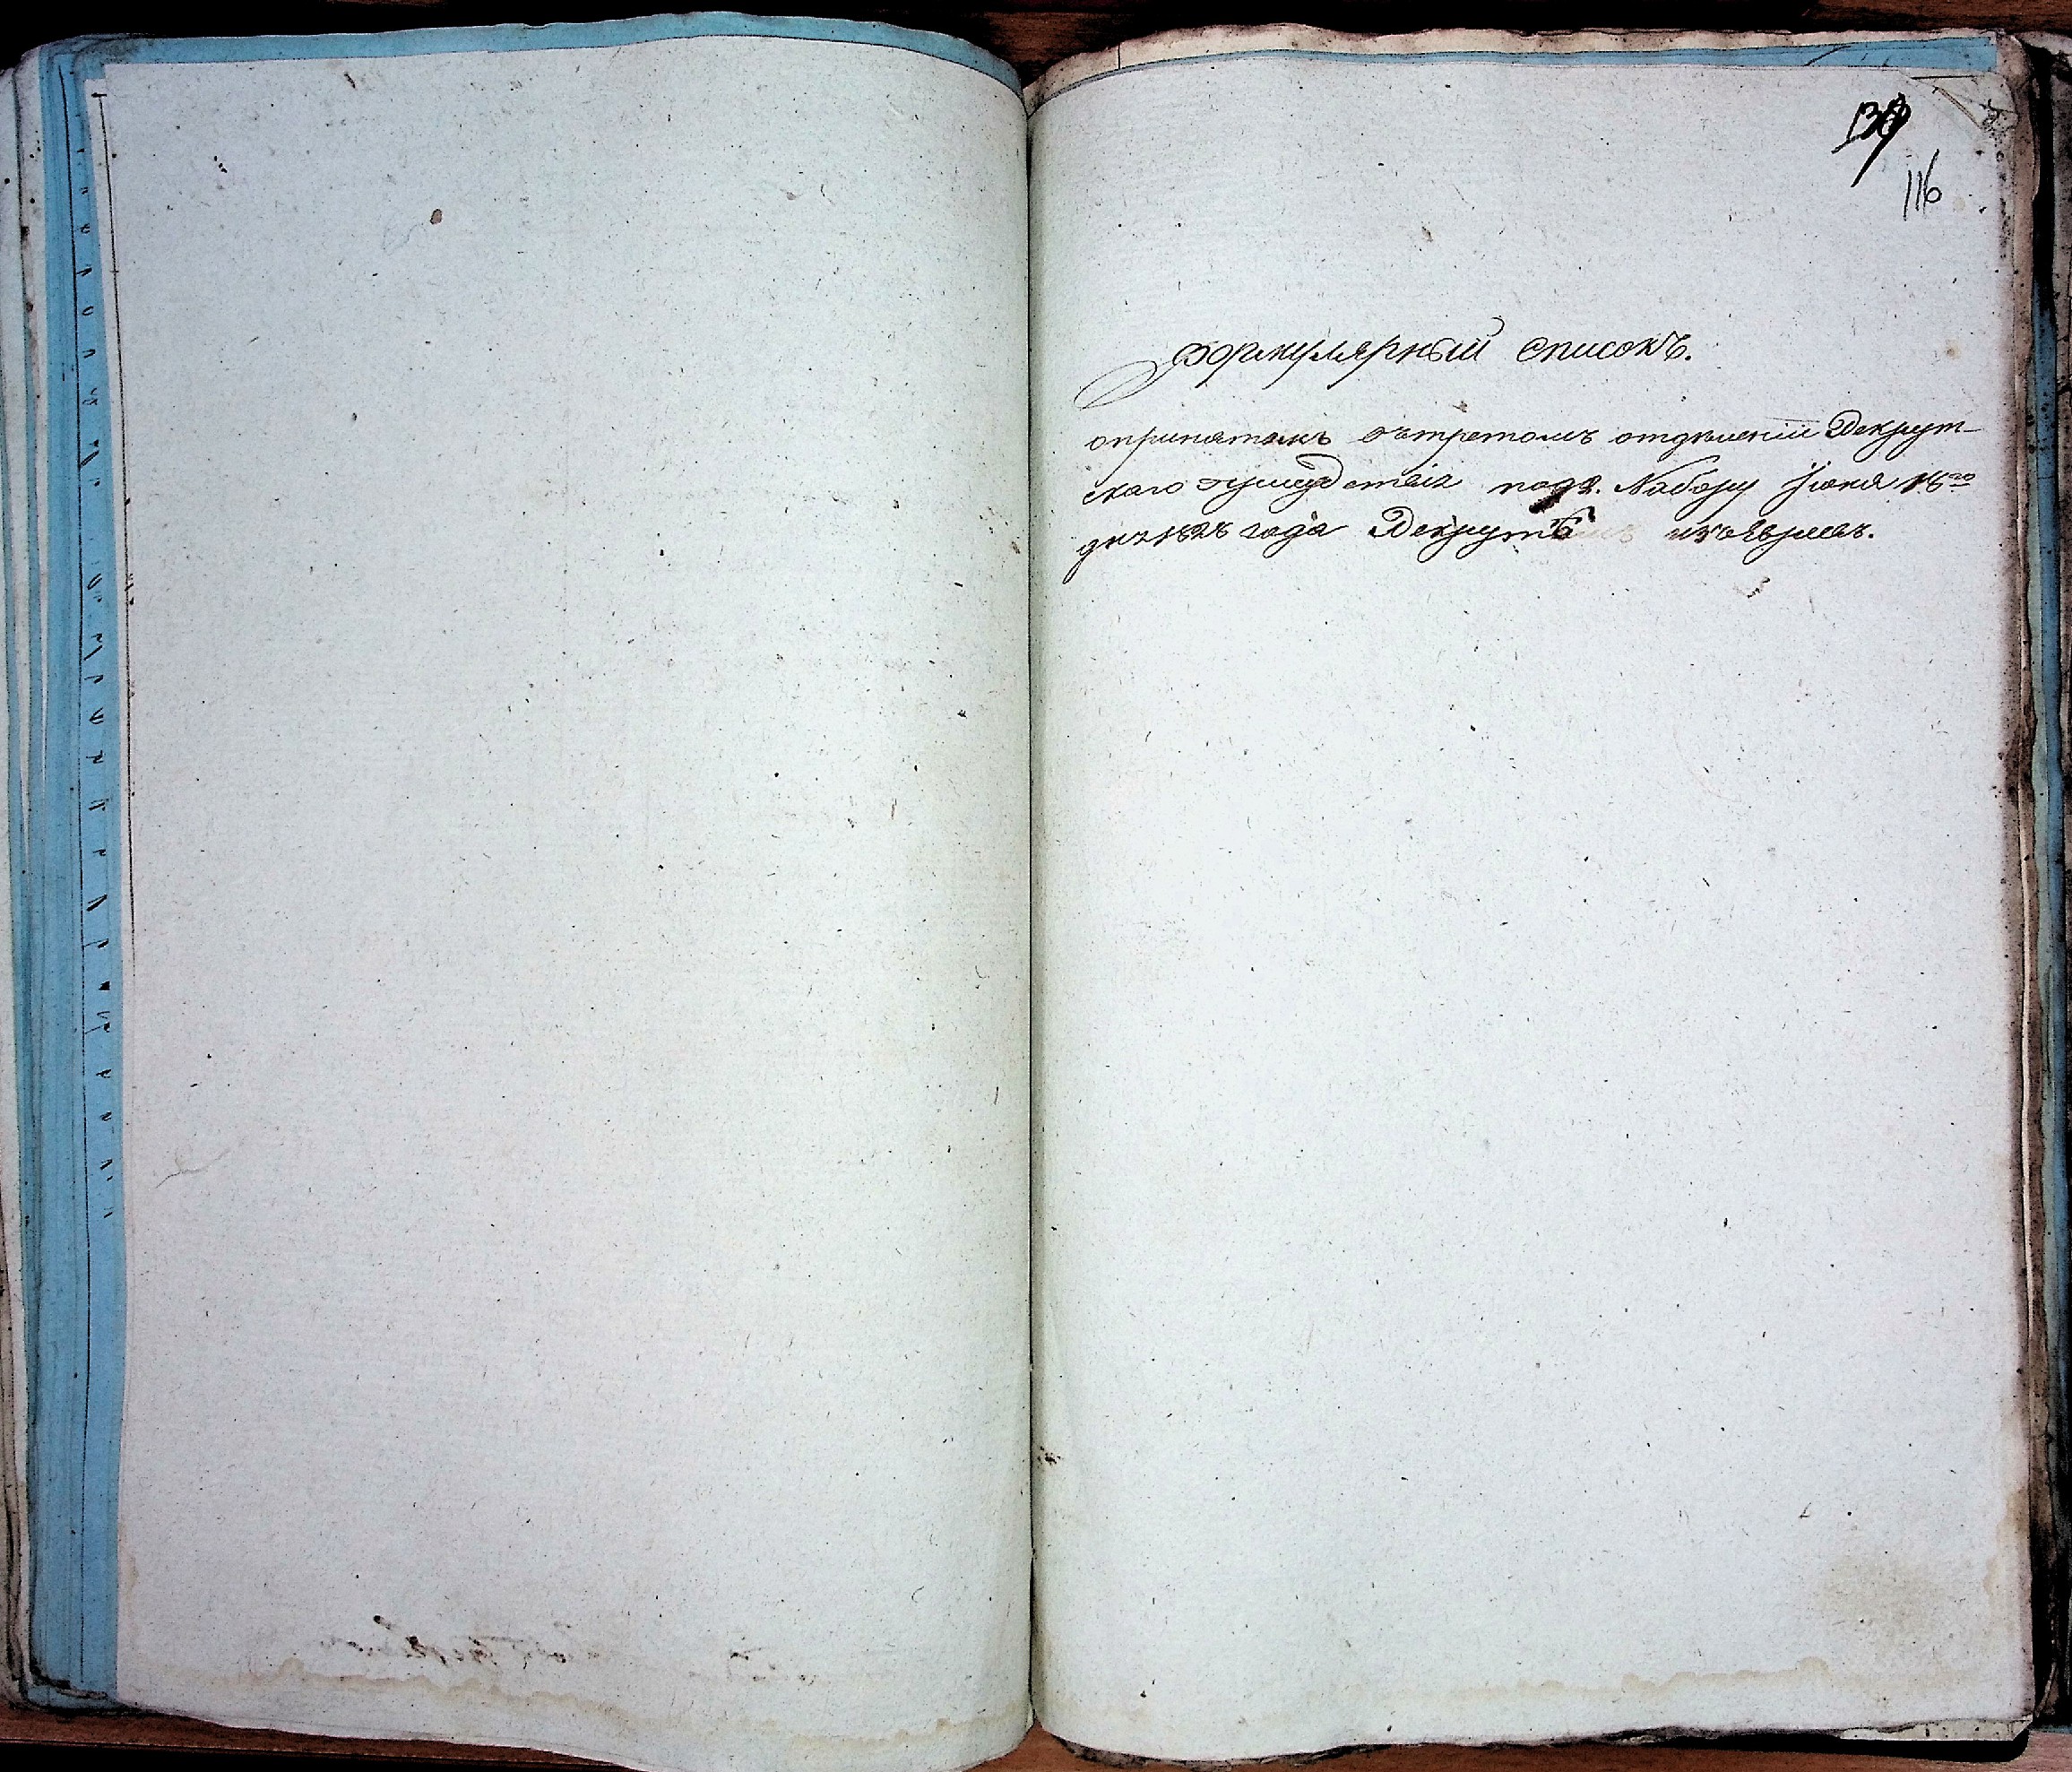 139
116
Формулярный списокъ.
опринятомъ вътретомъ отделении Рекрут-
скаго присудствия по 92. Набору Июня 16го
дня 1828 года Рекрутѣ изъ Евреевъ.